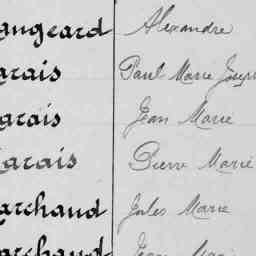 angeard Alexandre
arais Paul Marie Joseph
arais Jean Marie
arais Pierre Marie
archaud Jules Marie
archaud Jean